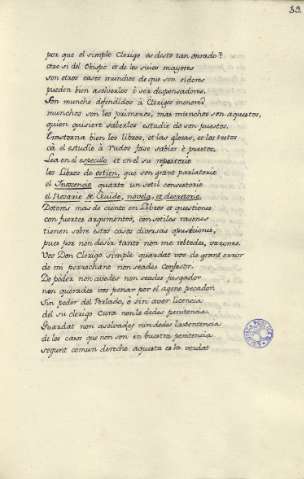 39.
por que el simple Clerigo es desto tan osrado?
Otro si del Obispo et de los suios mayores
son otros casos munchos de que son oidores
pueden bien asolvelos è ser dispensadores
Son muncho defendidos à Clerigos menores
munchos son los primeros, mas munchos son aquestos,
quien quisiere saberlos estudie do son puestos,
trastorne bien los libros, et las glosas, et los testos
cà el estudio à rudos fase sabios è puestos.
Lea en el especulo et en su reportorio
los Libros de ostien, que son grant parlatorio
el Inocencio quarto un sotil consistorio
el Rosario de Guido, novela, et decretorio
Dotores mas de ciento en Libros et questiones
con fuertes argumentos, con sotiles rasones
tienen sobre estos casos diversas opiniones,
pues por non desir tanto non me rebtedes, varones.
Vos Don Clerigo simple guardat vos de grant error
de mi parrochano non seades Confesor.
De poder non avedes non seades jusgador
non querades vos penar por el ageno pecador
Sin poder del Perlado, ò sin aver licencia
del su clerigo Cura non le dedes penitencia
Guardat non asolvades nin dedes la sentencia
de los casos que non son en buestra penitencia
segunt comun derecho aquesta es la verdat